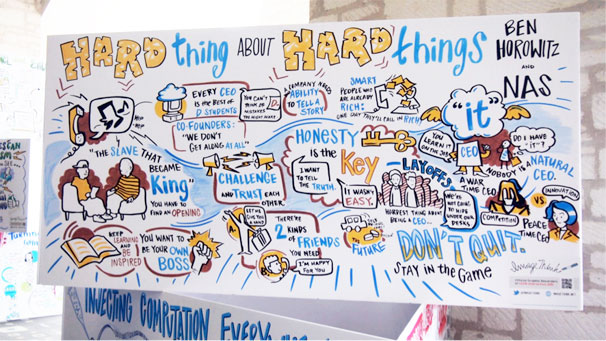 HARD thing ABOUT HARD things
BEN
HOROWITZ
AND
NAS
EVERY CEO
IS THE BEST OF
D STUDENTS
YOU CAN'T
THINK
MISTAKES
YOU MIGHT MAKE
COMPANY NEEDS
ABILITY
TO TELL A
STORY
SMART
PEOPLE WHO
ARE ALREADY
RICH:
ONE DAY THEY'LL CALL IN RICH!
"it"
CEO
YOU
LEARN IT
ON THE
JOB
DO I HAVE
"IT"?
NOBODY IS A NATURAL
CEO.
CO-FOUNDERS:
"WE DON'T
GET ALONG AT ALL"
HONESTY
is the
Key
I WANT
TO TELL
THE TRUTH.
IT WASN'T
EASY.
"THE SLAVE THAT
BECAME
King"
YOU HAVE
TO FIND AN OPENING
CHALLENGE
AND TRUST EACH
OTHER
LAYOFFS
HARDEST THING ABOUT
BEING A CEO...
WE'RE
NOT GOING
TO HIDE
UNDER OUR
DESKS
A WAR
TIME CEO
COMPETITION
VS.
INNOVATION
PEACE
TIME CEO
KEEP
LEARNING
AND BE
INSPIRED
YOU WANT TO
BE YOUR OWN
BOSS
THERE'RE
2 KINDS
of
FRIENDS
YOU NEED
I'M HAPPY
FOR YOU
THE
FUTURE
DON'T QUIT.
STAY IN the GAME
INJECTING COMPUTATION EVERY